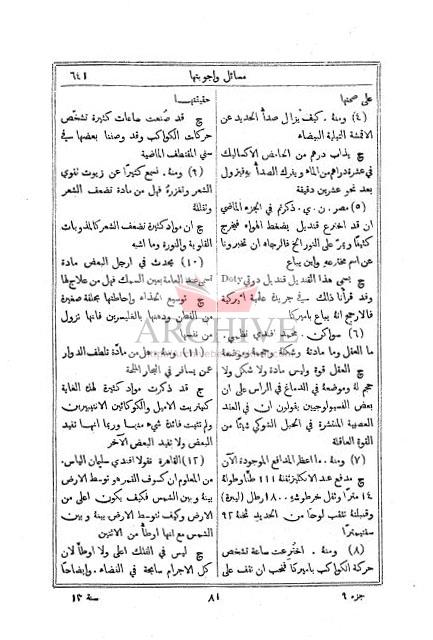 مسائل واجوبتها
٦٤١
على صحتها
(٤) ومنهُ . كيف يُزال صدأُ الحديد عن
الاقمشة التيلية البيضاء
ج يذاب درهم من الحامض الاكساليك
في عشرة دراهم من الماء ويفرك الصدأ بهِ فيزول
بعد نحو عشرين دقيقة
(٥) مصر . ن . ي . ذكرتم في الجزء الماضي
ان قد اخترع قنديل يضغط الهواء فيخرج
كثيفًا ويمرُّ على النور الخ فالرجاء ان تخبرونا
عن اسم مخترعهِ واين يباع
ج يسمى هذا القنديل قنديل دوتي Doty
وقد قرأنا ذلك في جريدة علمية اميركية
فالارجح انهُ يباع باميركا
(٦) سواكن . محمد افندي نظمي .
ما العقل وما مادتهُ وشكلهُ وحجمهُ وموضعهُ
ج العقل قوة وليس مادة ولا شكل ولا
حجم لهُ وموضعهُ في الدماغ في الراس على ان
بعض الفسيولوجيين يقولون ان في العقد
العصبية المنتشرة في الحبل الشوكي شيئًا من
القوة العاقلة
(٧) ومنهُ . ما اعظم المدافع الموجودة الآن
ج مدفع عند الانكليز ثقلهُ ١١١ طنًا وطولهُ
١٤ مترًا وثقل خرطوشهِ ١٨٠٠ رطل (ليبرة)
وقنبلتهُ تثقب لوحًا من الحديد ثخنهُ ٩٢
سنتيمترًا
(٨) ومنهُ . اختُرعت ساعة تشخص
حركة الكواكب باميركا فنحب ان نقف على
حقيقتها
ج قد صُنعت ساعات كثيرة تشخّص
حركات الكواكب وقد وصفنا بعضها في
سني المقتطف الماضية
(٩) ومنهُ . نسمع كثيرًا عن زيوت تقوي
الشعر وتغزرهُ فهل من مادة تضعف الشعر
وتقللهُ
ج ان مواد كثيرة تضعف الشعر كالمذوبات
القلوية والنورة وما اشبه
(١٠) يحدث في ارجل البعض مادة
تسمى عند العامة بعين السمك فهل من علاج لها
ج توسيع الحذاء واحاطتها بحلقة صغيرة
من القطن ودهنها بالغليسرين فانها تزول
من نفسها
(١١) ومنهُ . هل من مادّة تلطف الدوار
عمن يسافر في البحار الملحة
ج قد ذكرت مواد كثيرة لهذه الغاية
كنيتريت الاميل والكوكائين والانتيبيرين
ولم تثبت فائدة شيء منها وربما انها تفيد
البعض ولا تفيد البعض الآخر
(١٢) القاهرة . نقولا افندي سليمان الياس .
من المعلوم ان كسوف القمر هو توسط الارض
بينهُ وبين الشمس فكيف يكون اعلى من
الارض وكيف تتوسط الارض بينهُ وبين
الشمس مع انها اوطأ من الاثنين
ج ليس في الفلك اعلى ولا اوطأ لان
كل الاجرام سابحة في الفضاء . وايضاحًا
جزء ٩
٨١
سنة ١٣
ARCHIVE